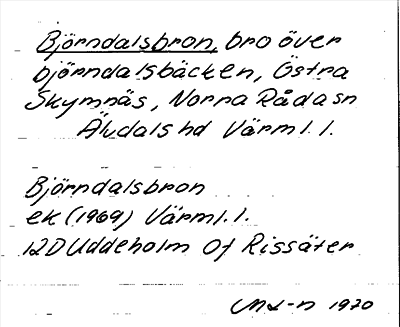 Björndalsbron, bro över
björndalsbäcken, Östra
Skymnäs, Norra Råda sn
Älvdals hd Värml. l.
Björndalsbron
ek (1969) Värml. l.
12D Uddeholm Of Rissäter
1970